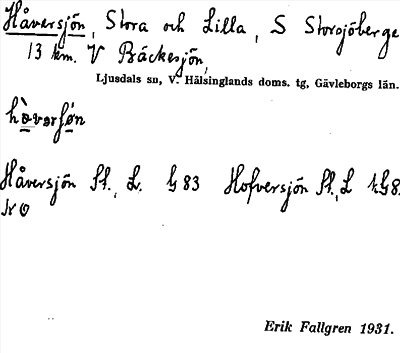 Håversjön, Stora och Lilla, S Storsjöberge
13 km. V Bäckesjön,
Ljusdals sn, V. Hälsinglands doms. tg, Gävleborgs län.
Håversjön St., L. G 83 Hofversjön St., L
Erik Fallgren 1931.